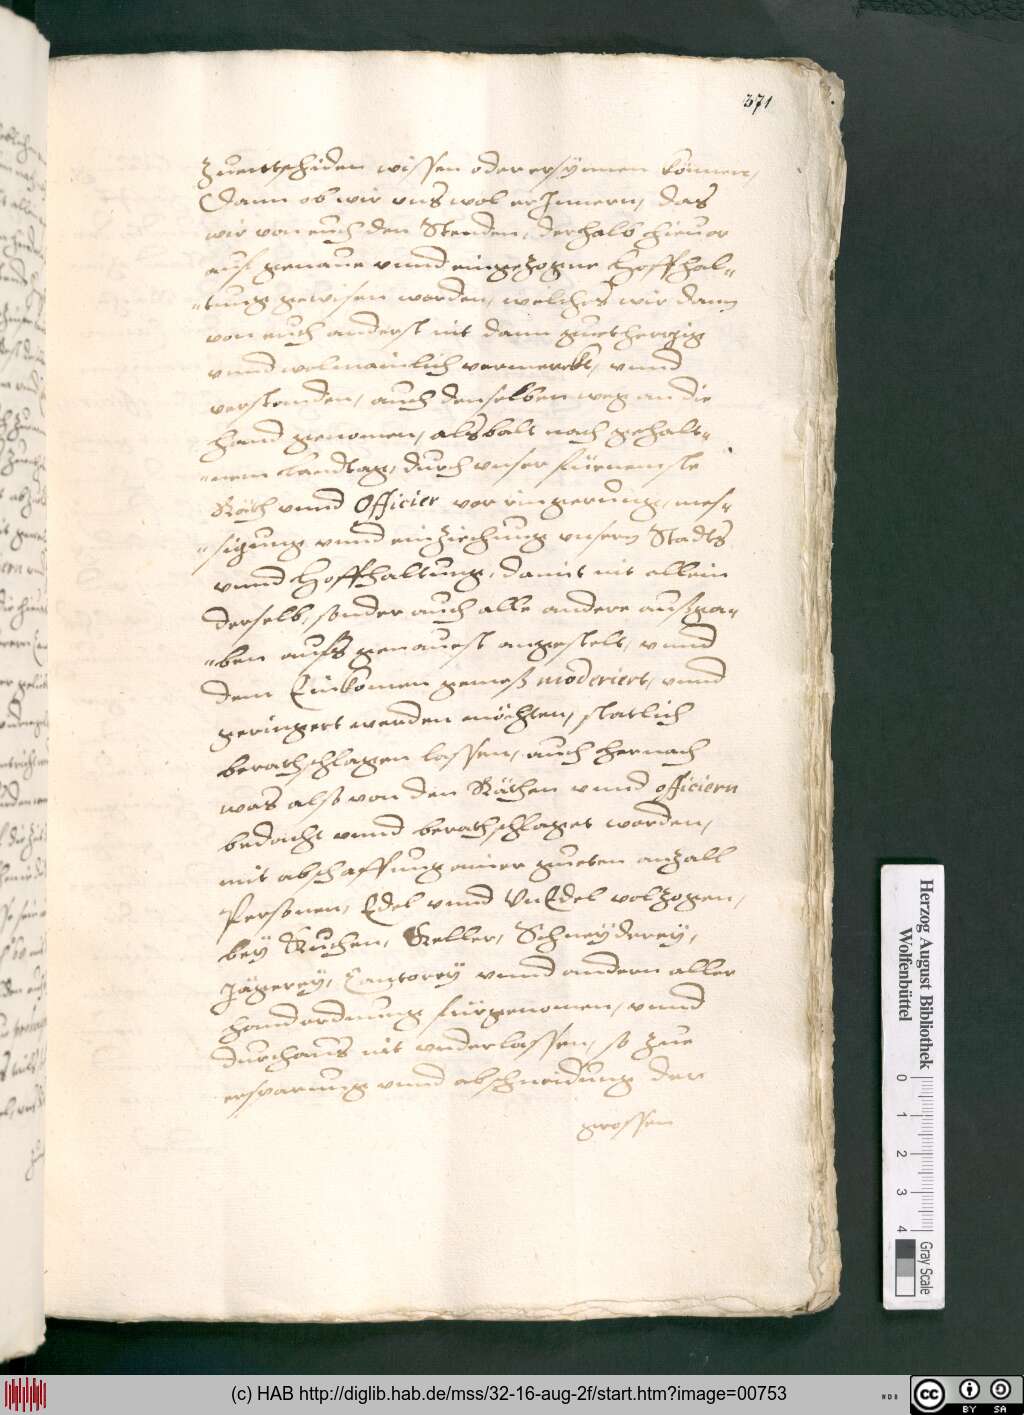 371
zuentschiden wissen oder ersÿnnen können,
Dann ob wir vns wol erJnnern, das
wir von euch den Stenden, derhalb hieuor
auf genaue vnnd eingezogne Hoffhal-
-tung gewisen worden, welches wir dann
von euch anderst nit dann guetherzig
vnnd wolmainlich vermerckt, vnnd
verstanden, auch denselben weg an die
hand genomen, alsbalt nach gehalt-
-nem Landtag, durch vnser fürnemste
Räth vnnd Officier vor ringerung, mes-
-sigung vnnd einziechung vnsern Stadts
vnnd Hoffhaltung, damit nit allein
derselb, sonder auch alle andere außga-
-ben aufs genauest angestelt, vnnd
dem Einkomen gemeß moderiert, vnnd
geringert werden möchten, statlich
berathschlagen lassen, auch hernach
was also von den Räthen vnnd officiern
bedacht vnnd berathschlaget worden,
mit abschaffung ainer gueten anzall
Personen, Edel vnnd VnEdel volzogen,
beÿ Kuchen, Keller, Schneÿderey,
Jägereÿ, Cantoreÿ vnnd andern aller
hand ordnung fürgenomen, vnnd
durchaus nit vnderlassen, so zue
ersparung vnnd abschneidung der
grossen
Herzog August Bibliothek
Wolfenbüttel
0 1 2 3 4
Gray Scale
(c) HAB http://diglib.hab.de/mss/32-16-aug-2f/start.htm?image=00753
WDB
cc BY SA